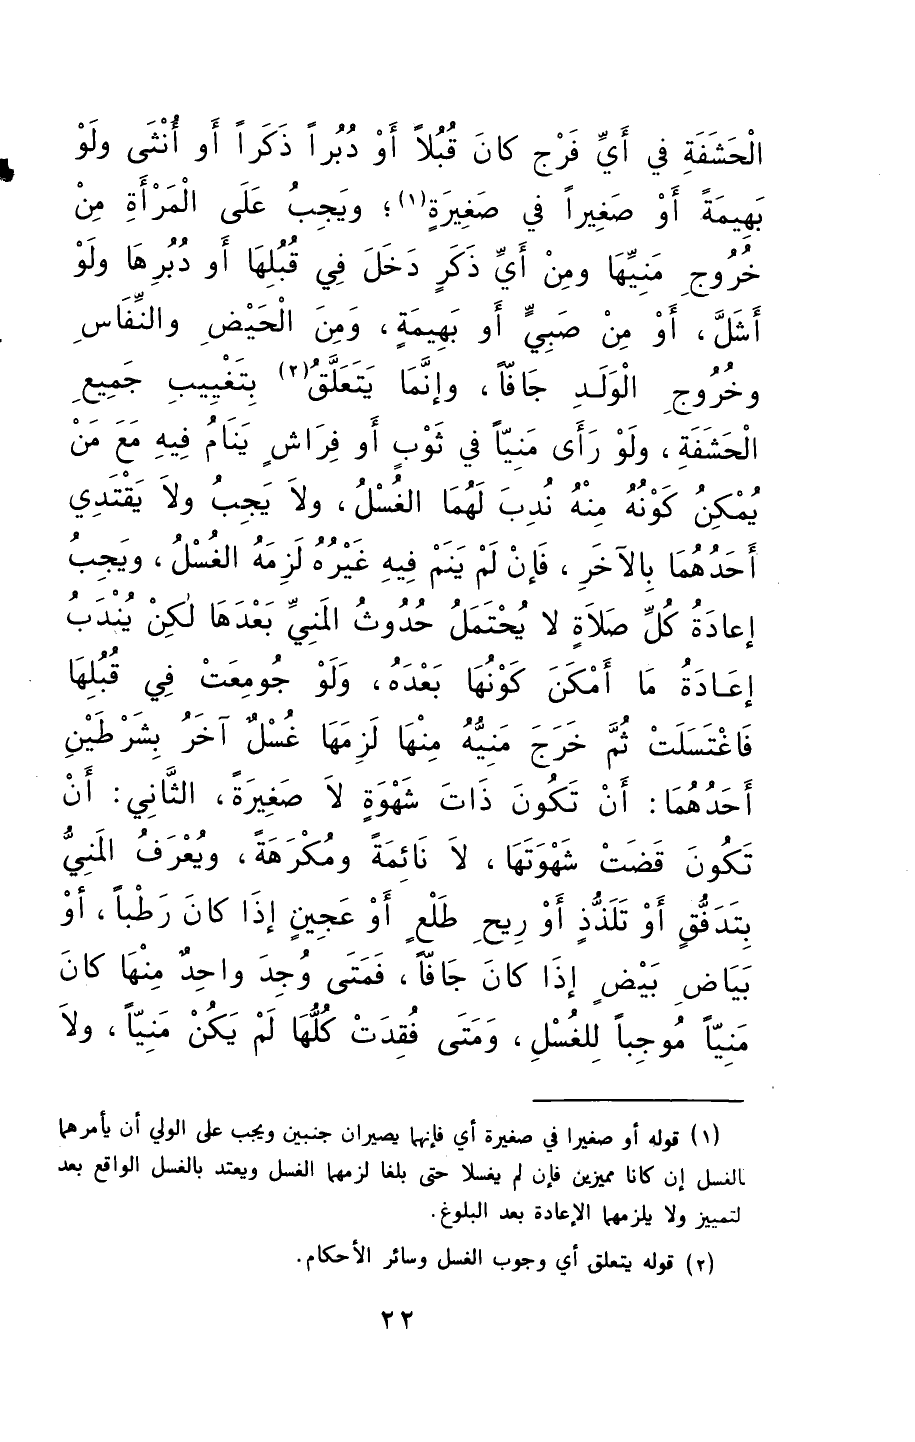 الْحَشَفَةِ في أَيِّ فَرْجٍ كانَ قُبُلاً أَوْ دُبُراً ذَكَراً أَو أُنْثَى ولَوْ
بَهِيمَةً أَوْ صَغِيراً في صَغِيرَةٍ(١)؛ ويَجِبُ عَلَى الْمَرْأَةِ مِنْ
خُرُوجِ مَنِيِّهَا ومِنْ أَيِّ ذَكَرٍ دَخَلَ فِي قُبُلِهَا أَو دُبُرِهَا ولَوْ
أَشَلَّ، أَوْ مِنْ صَبِيٍّ أَو بَهِيمَةٍ، وَمِنَ الْحَيْضِ والنِّفَاسِ
وخُرُوجِ الْوَلَدِ جَافّاً، وإنَّمَا يَتَعَلَّقُ(٢) بِتَغْيِيبِ جَمِيعِ
الْحَشَفَةِ، ولَوْ رَأَى مَنِيّاً في ثَوْبٍ أو فِرَاشٍ يَنَامُ فِيهِ مَعَ مَنْ
يُمْكِنُ كَوْنُهُ مِنْهُ نُدِبَ لَهُمَا الغُسْلُ، ولاَ يَجِبُ ولاَ يَقْتَدِي
أَحَدُهُمَا بِالآخَرِ، فَإنْ لَمْ يَنَمْ فِيهِ غَيْرُهُ لَزِمَهُ الغُسْلُ، ويَجِبُ
إعادَةُ كُلِّ صَلاَةٍ لا يُحْتَمَلُ حُدُوثُ المَنِيِّ بَعْدَهَا لٰكِنْ يُنْدَبُ
إعَادَةُ مَا أَمْكَنَ كَوْنُهَا بَعْدَهُ، ولَوْ جُومِعَتْ فِي قُبُلِهَا
فَاغْتَسَلَتْ ثُمَّ خَرَجَ مَنِيُّهُ مِنْهَا لَزِمَهَا غُسْلٌ آخَرُ بِشَرْطَيْنِ
أَحَدُهُمَا: أَنْ تَكُونَ ذَاتَ شَهْوَةٍ لاَ صَغِيرَةً، الثَّانِي: أَنْ
تَكُونَ قَضَتْ شَهْوَتَهَا، لاَ نَائِمَةً ومُكْرَهَةً، ويُعْرَفُ المَنِيُّ
بِتَدَفُّقٍ أَوْ تَلَذُّذٍ أَوْ رِيحِ طَلْعٍ أَوْ عَجِينٍ إذَا كانَ رَطْباً، أوْ
بَيَاضِ بَيْضٍ إذَا كانَ جَافّاً، فَمَتَى وُجِدَ واحِدٌ مِنْهَا كانَ
مَنِيّاً مُوجِباً لِلغُسْلِ، وَمَتَى فُقِدَتْ كُلُّهَا لَمْ يَكُنْ مَنِيّاً، ولاَ
(١) قوله أو صغيرا في صغيرة أي فإنهما يصيران جنبين ويجب على الولي أن يأمرهما
بالغسل إن كانا مميزين فإن لم يغسلا حتى بلغا لزمهما الغسل ويعتد بالغسل الواقع بعد
لتمييز ولا يلزمهما الإعادة بعد البلوغ.
(٢) قوله يتعلق أي وجوب الغسل وسائر الأحكام.
٢٢